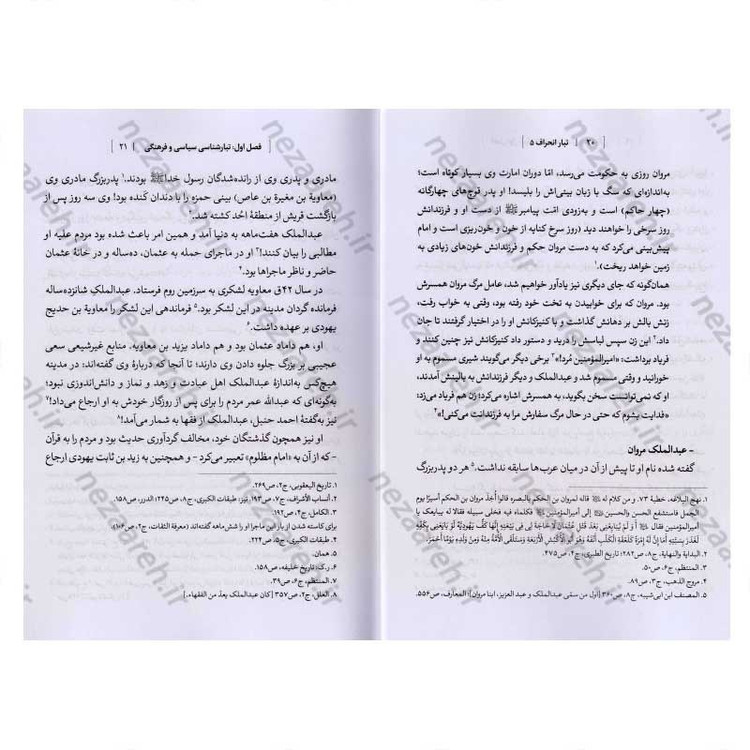 ۲۰ | تبار انحراف ۵
مروان روزی به حکومت می‌رسد، امّا دوران امارت وی بسیار کوتاه است؛
به‌اندازه‌ای که سگ با زبان بینی‌اش را بلیسد! او پدر قوچ‌های چهارگانه
(چهار حاکم) است و به‌زودی امّت پیامبر ﷺ از دست او و فرزندانش
روز سرخی را خواهند دید (روز سرخ کنایه از خون و خون‌ریزی است و امام
پیش‌بینی می‌کرد که به دست مروان حکم و فرزندانش خون‌های زیادی به
زمین خواهد ریخت).۱
همان‌گونه که جای دیگری نیز یادآور خواهیم شد، عامل مرگ مروان همسرش
بود. مروان که برای خوابیدن به تخت خود رفته بود، وقتی به خواب رفت،
زنش بالش بر دهانش گذاشت و با کنیزکانش او را در اختیار گرفتند تا جان
داد.۲ این زن سپس لباسش را درید و دستور داد کنیزکانش نیز چنین کنند و
فریاد برداشت: «امیرالمؤمنین مُرد!»۳ برخی دیگر می‌گویند شیری مسموم به او
خورانید و وقتی مسموم شد و عبدالملک و دیگر فرزندانش به بالینش آمدند،
او که نمی‌توانست سخن بگوید، به همسرش اشاره می‌کرد؛ زن هم فریاد می‌زد:
«فدایت بشوم که حتی در حال مرگ سفارش مرا به فرزندانت می‌کنی!»۴
- عبدالملک مروان
گفته شده نام او تا پیش از آن در میان عرب‌ها سابقه نداشت.۵ هر دو پدربزرگ
۱. نهج البلاغه، خطبة ۷۳ و من کلام له ﷺ قاله لمروان بن الحکم بالبصره قالوا أُخِذَ مروان بن الحکم أسیرًا یوم
الجمل فاستشفع الحسن والحسین إلی أمیرالمؤمنین فکلماه فیه فخلی سبیله فقالا له یبایعک یا
أمیرالمؤمنین فقال
۲. البدایة والنهایة، ج۸، ص۲۸۲؛ تاریخ الطبری، ج۴، ص۴۷۵.
۳. المنتظم، ج۶، ص۵۰.
۴. مروج الذهب، ج۳، ص۸۹.
۵. المصنف ابن ابی‌شیبه، ج۸، ص۳۶۰ [اول من سمّی عبدالملک و عبدالعزیز، ابنا مروان]؛ المعارف، ص۵۵۶.
فصل اول: تبارشناسی سیاسی و فرهنگی | ۲۱
مادری و پدری وی از رانده‌شدگان رسول خدا ﷺ بودند.۱ پدربزرگ مادری وی
(معاویة بن مغیرة بن عاص) بینی حمزه را با دندان کَنده بود! وی سه روز پس از
بازگشت قریش از منطقهٔ اُحُد کشته شد.۲
عبدالملک هفت‌ماهه به دنیا آمد و همین امر باعث شده بود مردم علیه او
مطالبی را بیان کنند!۳ او در ماجرای حمله به عثمان، ده‌ساله و در خانهٔ عثمان
حاضر و ناظر ماجراها بود.۴
در سال ۴۲ق معاویه لشکری به سرزمین روم فرستاد. عبدالملکِ شانزده‌ساله
فرمانده گردان مدینه در این لشکر بود.۵ فرماندهی این لشکر را معاویة بن حدیج
یهودی بر عهده داشت.۶
او، هم داماد عثمان بود و هم داماد یزید بن معاویه. منابع غیرشیعی سعی
عجیبی بر بزرگ جلوه دادن وی دارند؛ تا آنجا که دربارهٔ وی گفته‌اند: در مدینه
هیچ‌کس به‌اندازهٔ عبدالملک اهل عبادت و زهد و نماز و دانش‌اندوزی نبود؛
به‌گونه‌ای که عبدالله عمر مردم را برای پس از روزگار خودش به او ارجاع می‌داد!۷
نیز به‌گفتهٔ احمد حنبل، عبدالملک از فقها به شمار می‌آمد!۸
او نیز همچون گذشتگان خود، مخالف گردآوری حدیث بود و مردم را به قرآن
- که از آن به «امام مظلوم» تعبیر می‌کرد - و همچنین به زید بن ثابت یهودی ارجاع
۱. تاریخ الیعقوبی، ج۲، ص۲۶۹.
۲. أنساب الأشراف، ج۷، ص۱۹۳؛ نیز: طبقات الکبری، ج۸، ص۲۴۵؛ الدرر، ص۱۵۸.
۳. الکامل، ج۴، ص۱۹۲.
برای کاسته شدن از بار این ماجرا او را شش ماهه گفته‌اند (معرفة الثقات، ج۲، ص۱۰۶).
۴. طبقات الکبری، ج۵، ص۲۲۴.
۵. همان.
۶. ر.ک: تاریخ خلیفه، ص۱۵۸.
۷. المنتظم، ج۶، ص۳۹.
۸. العلل، ج۲، ص۳۵۷ [کان عبدالملک یعدّ من الفقهاء.]
nezaareh.ir